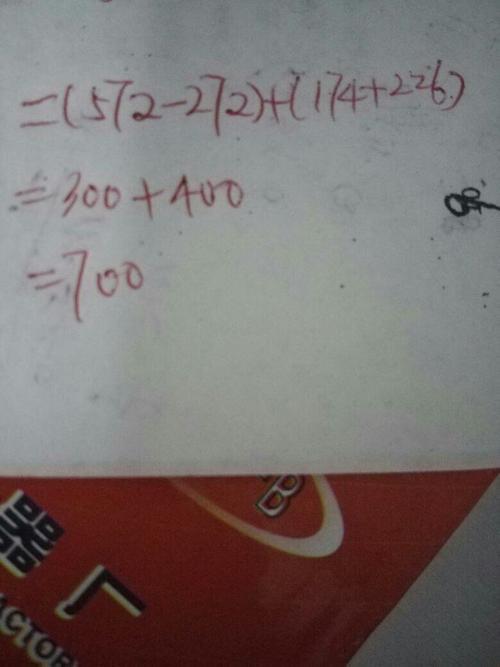 =(572-272)+(174+226)
=300+400
=700
B
器厂
ACTORY